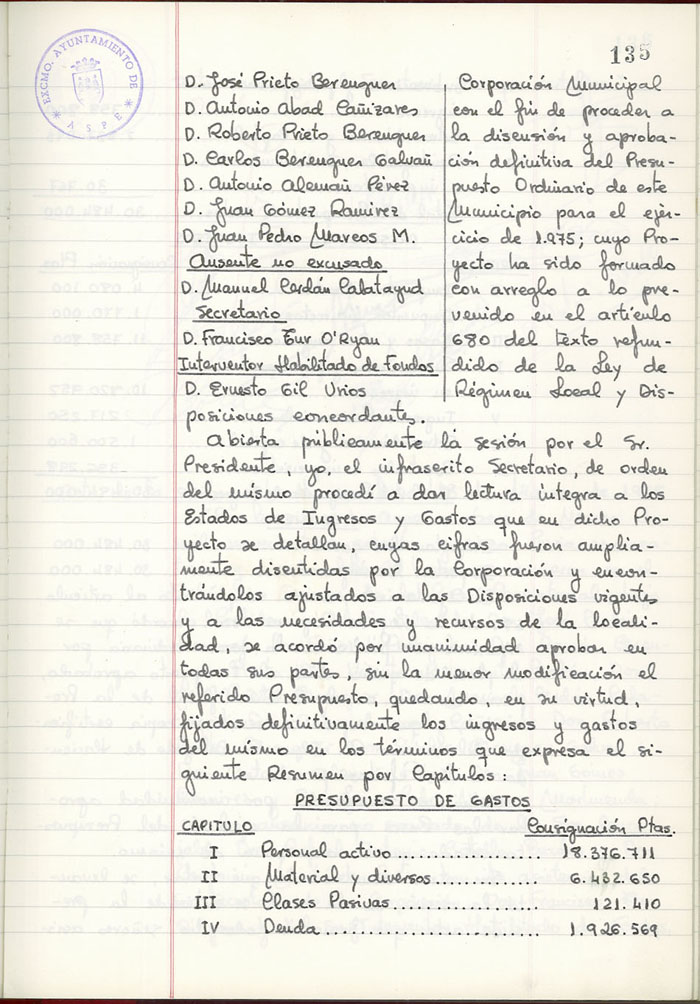 135
EXCMO. AYUNTAMIENTO DE
* ASPE *
D. José Prieto Berenguer
D. Antonio Abad Cañizares
D. Roberto Prieto Berenguer
D. Carlos Berenguer Galvañ
D. Antonio Alemañ Pérez
D. Juan Gómez Ramirez
D. Juan Pedro Marcos M.
Ausente no excusado
D. Manuel Cerdán Calatayud
Secretario
D. Francisco Tur O'Ryan
Interventor Habilitado de Fondos
D. Ernesto Gil Urios
Corporación Municipal
con el fin de proceder a
la discusión y aproba-
ción definitiva del Presu-
puesto Ordinario de este
Municipio para el ejer-
cicio de 1.975; cuyo Pro-
yecto ha sido formado
con arreglo a lo pre-
venido en el artículo
680 del texto refun-
dido de la Ley de
Régimen Local y Dis-
posiciones concordantes.
Abierta públicamente la sesión por el Sr.
Presidente, yo, el infrascrito Secretario, de orden
del mismo procedí a dar lectura integra a los
Estados de Ingresos y Gastos que en dicho Pro-
yecto se detallan, cuyas cifras fueron amplia-
mente discutidas por la Corporación y encon-
trándolos ajustados a las Disposiciones vigentes
y a las necesidades y recursos de la locali-
dad, se acordó por unanimidad aprobar en
todas sus partes, sin la menor modificación el
referido Presupuesto, quedando, en su virtud,
fijados definitivamente los ingresos y gastos
del mismo en los términos que expresa el si-
guiente Resumen por Capitulos:
PRESUPUESTO DE GASTOS
CAPITULO Consignación Ptas.
I Personal activo.................. 18.376.711
II Material y diversos............. 6.432.650
III Clases Pasivas.................. 121.410
IV Deuda............................ 1.926.569